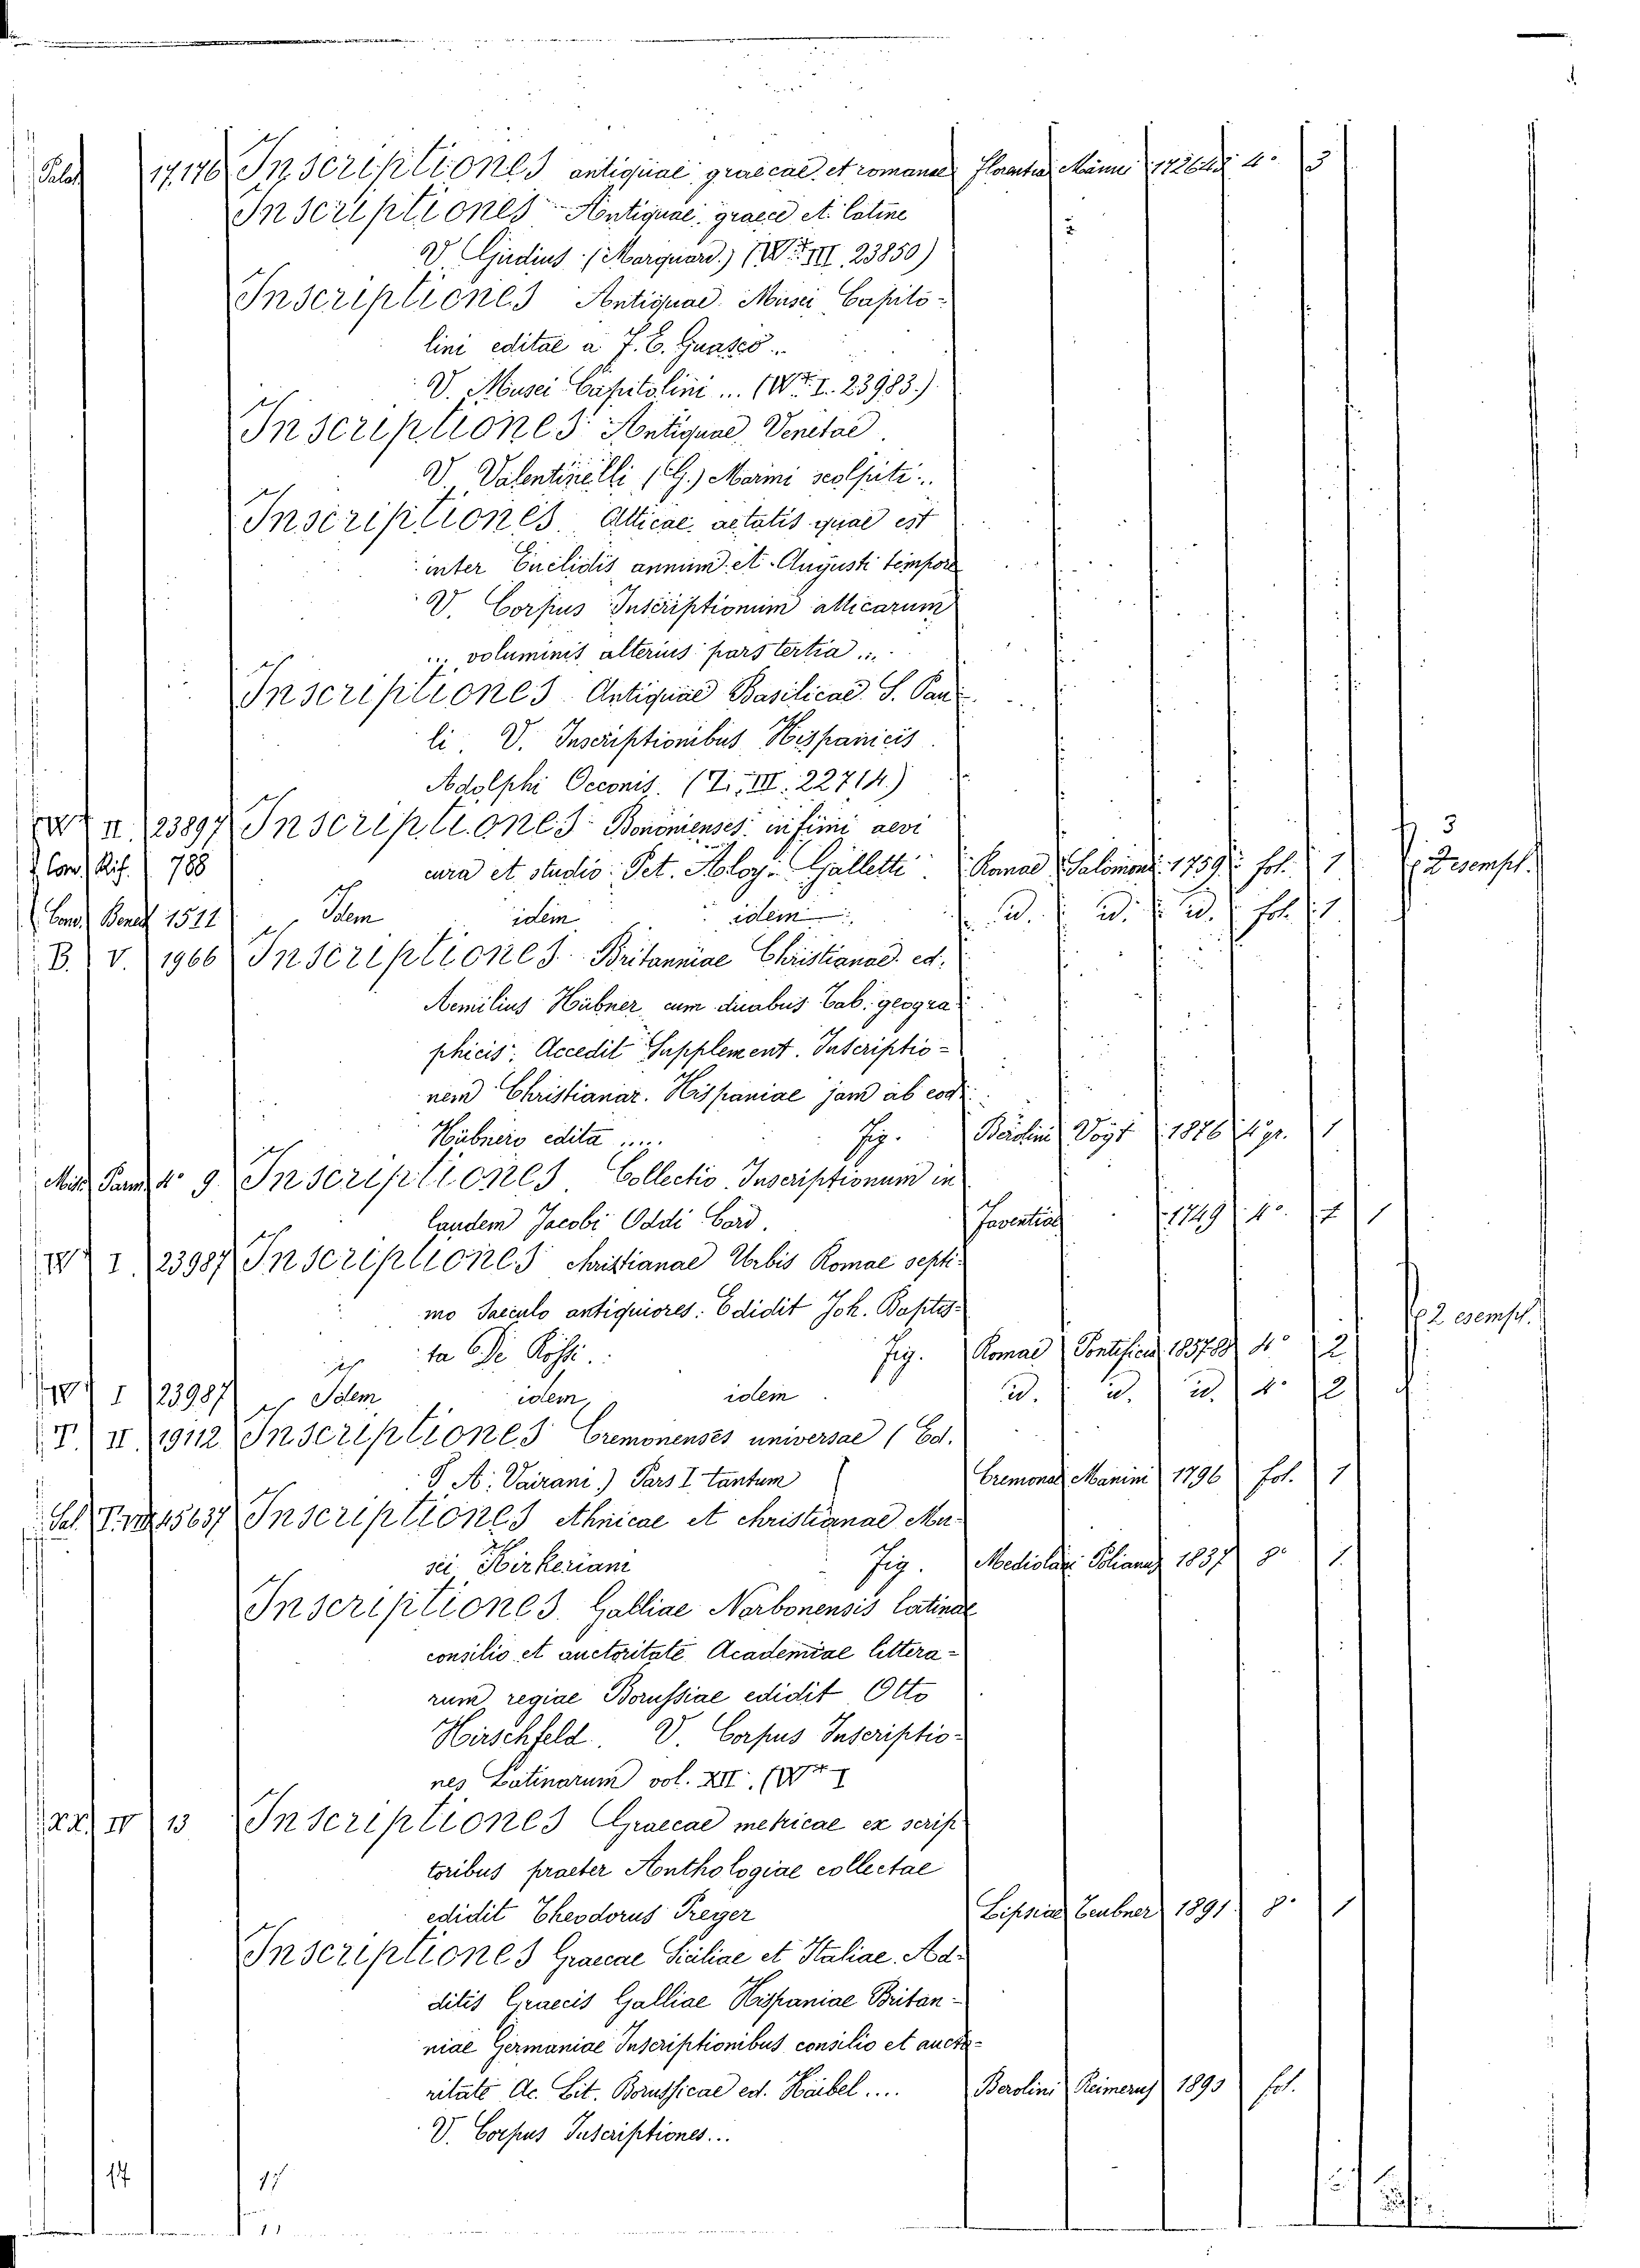 Palat 17,176 Inscriptiones antiquae graecae et romanae Florentiae Männi 4° 3
Inscriptiones Antiquae, graece et latine
V. Gudius (Marquard.) (Wt III. 23850)
Inscriptiones Antiquae Musei Capito-
lini editae a F. E. Guasco..
V. Musei Capitolini ... (Wt. I. 23983.)
Inscriptiones Antiquae Venetae
V. Valentinelli (G.) Marmi scolpiti..
Inscriptiones Atticae aetatis quae est
inter Euclidis annum et Augusti tempora
V. Corpus Inscriptionum atticarum
... voluminis alterius pars tertia ...
Inscriptiones Antiquae Basilicae S. Pau-
li. V. Inscriptionibus Hispanicis
Adolphi Occonis. (T. III. 22714)
Wt II. 23897 Inscriptiones Bononienses infimi aevi 3
Con. Rif. 788 cura et studio Pet. Aloy. Galletti Romae Salomoni 1759 fol. 1 2 esempl.
Cand. Bened. 1511 Idem idem idem id. id. id. fol. 1
B. V. 1966 Inscriptiones Britanniae Christianae ed.
Aemilius Hübner, cum duabus tab. geogra-
phicis. Accedit Supplement. Inscriptio-
nem Christianar. Hispaniae jam ab eod.
Hübnero edita ..... Fig. Berolini Vogt 1876 4 gr. 1
Misc. Parm. 4° 9 Inscriptiones. Collectio Inscriptionum in
laudem Jacobi Oddi Card. Faventiae 1749 4° 1
Wt I. 23987 Inscriptiones christianae Urbis Romae septi-
mo Saeculo antiquiores. Edidit Joh. Baptis- 2 esempl.
ta De Rossi. Fig. Romae Pontificia 185788 4° 2
Wt I 23987 Idem idem, idem id. id. id. 4° 2
T. II. 19112 Inscriptiones Cremonenses universae (Ed.
T. A. Vairani.) Pars I tantum Cremonae Manini 1796 fol. 1
Sal. T. VII 45637 Inscriptiones ethnicae et christianae Mu-
sei Kirkeriani Fig. Mediolani 1837 8° 1
Inscriptiones Galliae Narbonensis latinae
consilio et auctoritate Academiae littera-
rum regiae Borussiae edidit Otto
Hirschfeld. V. Corpus Inscriptio-
nes Latinarum vol. XII. (Wt I
XX. IV 13 Inscriptiones Graecae metricae ex scrip-
toribus praeter Anthologiae collectae
edidit Theodorus Preger Lipsiae Teubner 1891 8° 1
Inscriptiones Graecae Siciliae et Italiae. Ad-
ditis Graecis Galliae Hispaniae Britan-
niae Germaniae Inscriptionibus consilio et aucto-
ritate Ac. Lit. Borussicae ed. Kaibel .... Berolini Reimerus 1893 fol.
V. Corpus Inscriptiones...
17 17
11